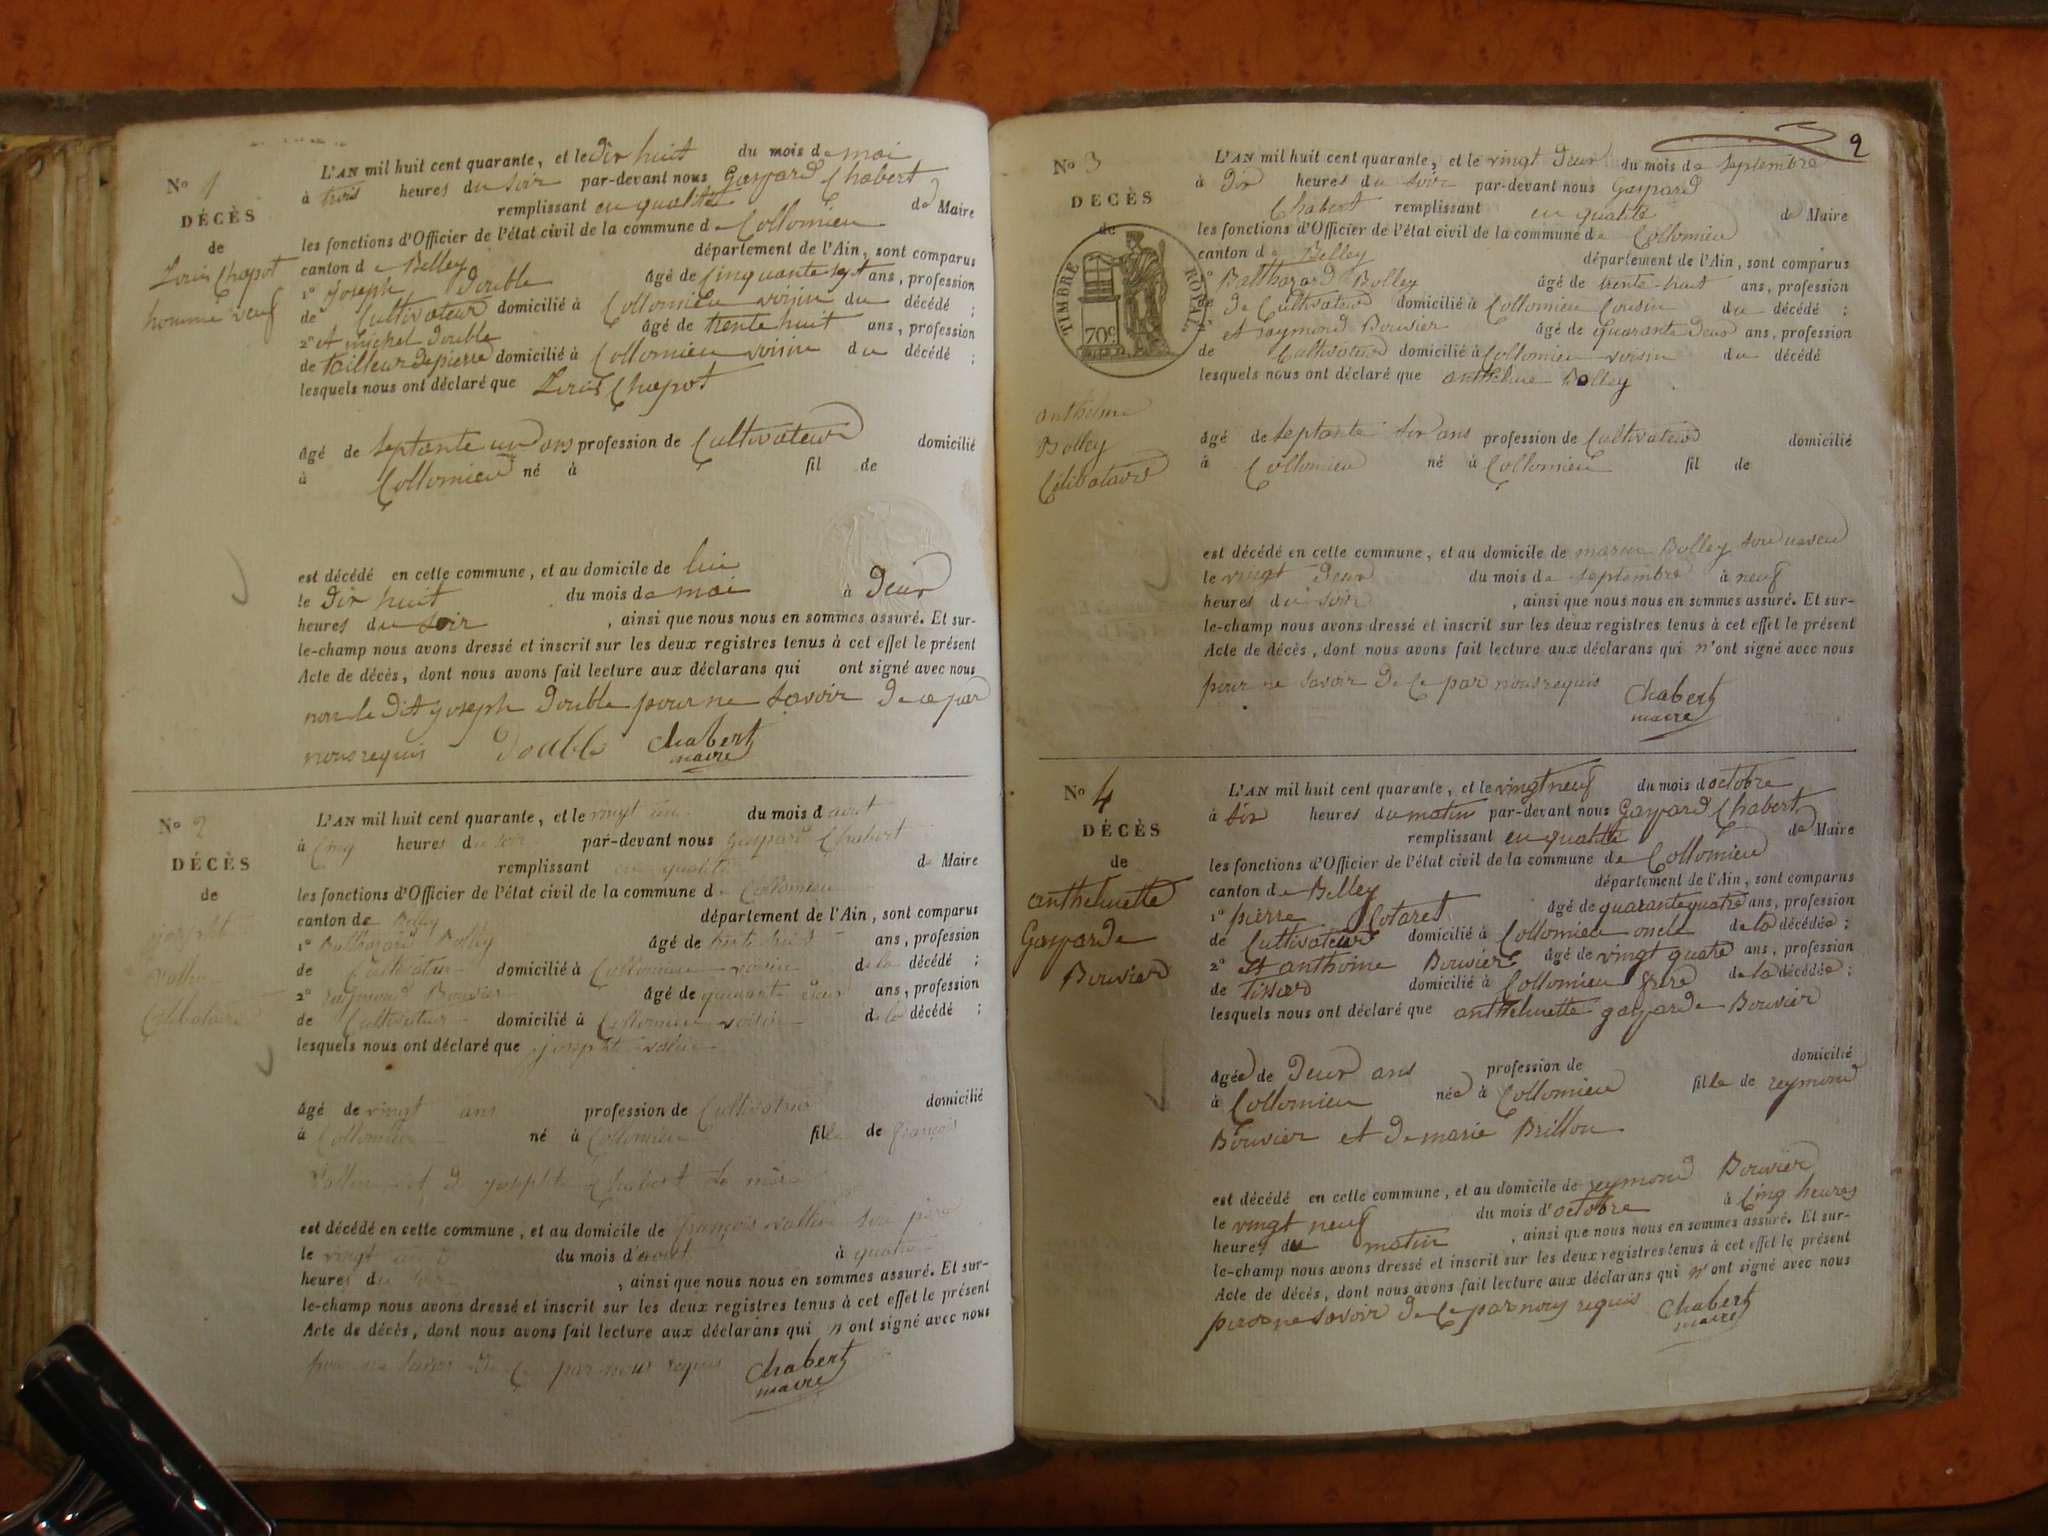 N° 1
DÉCÈS
de
Louis Chapot
homme veuf
L'AN mil huit cent quarante, et le dix huit du mois de mai
à trois heures du soir par-devant nous Gaspard Chabert
remplissant en qualité de Maire
les fonctions d'Officier de l'état civil de la commune de Collomieu
canton de Belley département de l'Ain, sont comparus
1° Joseph Double âgé de cinquante sept ans, profession
de Cultivateur domicilié à Collomieu voisin du décédé ;
2° et michel Double âgé de trente huit ans, profession
de tailleur de pierre domicilié à Collomieu voisin du décédé ;
lesquels nous ont déclaré que Louis Chapot
âgé de septante un ans profession de Cultivateur domicilié
à Collomieu né à fil de
est décédé en cette commune, et au domicile de lui
le dix huit du mois de mai à deux
heures du soir, ainsi que nous nous en sommes assuré. Et sur-
le-champ nous avons dressé et inscrit sur les deux registres tenus à cet effet le présent
Acte de décès, dont nous avons fait lecture aux déclarans qui ont signé avec nous
non le dit joseph Double pour ne savoir de ce par
nous requis Double Chabert
maire
N° 2
DÉCÈS
de
josephte
Célibataire
L'AN mil huit cent quarante, et le vingt un du mois d'aout
à Cinq heures du soir par-devant nous Gaspard Chabert
remplissant en qualité de Maire
les fonctions d'Officier de l'état civil de la commune de Collomieu
canton de Belley département de l'Ain, sont comparus
1° Balthazard Bolley âgé de trente huit ans, profession
de Cultivateur domicilié à Collomieu voisin de la décédé ;
2° raymond Bouvier âgé de quarante deux ans, profession
de Cultivateur domicilié à Collomieu voisin de la décédé ;
lesquels nous ont déclaré que josephte
âgé de vingt ans profession de Cultivateur domicilié
à Collomieu né à Collomieu fille de françois
et de josephte Chabert
est décédé en cette commune, et au domicile de françois son père
le vingt un du mois d'aout à quatre
heures du soir, ainsi que nous nous en sommes assuré. Et sur-
le-champ nous avons dressé et inscrit sur les deux registres tenus à cet effet le présent
Acte de décès, dont nous avons fait lecture aux déclarans qui n'ont signé avec nous
pour ne savoir de ce par nous requis Chabert
maire
2
N° 3
DECÈS
de
TIMBRE ROYAL
70c
anthelme
Bolley
Célibataire
L'AN mil huit cent quarante, et le vingt deux du mois de septembre
à dix heures du soir par-devant nous Gaspard
Chabert remplissant en qualité de Maire
les fonctions d'Officier de l'état civil de la commune de Collomieu
canton de Belley département de l'Ain, sont comparus
1° Balthazard Bolley âgé de trente-huit ans, profession
de Cultivateur domicilié à Collomieu Cousin du décédé ;
et raymond Bouvier âgé de quarante deux ans, profession
de Cultivateur domicilié à Collomieu voisin du décédé
lesquels nous ont déclaré que anthelme Bolley
âgé de septante six ans profession de Cultivateur domicilié
à Collomieu né à Collomieu fil de
est décédé en cette commune, et au domicile de Bolley son neveu
le vingt deux du mois de septembre à neuf
heures du soir, ainsi que nous nous en sommes assuré. Et sur-
le-champ nous avons dressé et inscrit sur les deux registres tenus à cet effet le présent
Acte de décès, dont nous avons fait lecture aux déclarans qui n'ont signé avec nous
pour ne savoir de ce par nous requis Chabert
maire
N° 4
DÉCÈS
de
anthelmette
Gasparde
Bouvier
L'AN mil huit cent quarante, et le vingt neuf du mois d'octobre
à six heures du matin par-devant nous Gaspard Chabert
remplissant en qualité de Maire
les fonctions d'Officier de l'état civil de la commune de Collomieu
canton de Belley département de l'Ain, sont comparus
1° pierre Cotaret âgé de quarante quatre ans, profession
de Cultivateur domicilié à Collomieu oncle de la décédée ;
2° et anthoine Bouvier âgé de vingt quatre ans, profession
de tisser domicilié à Collomieu frère de la décédée ;
lesquels nous ont déclaré que anthelmette gasparde Bouvier
âgée de deux ans profession de domicilié
à Collomieu née à Collomieu fille de reymond
Bouvier et de marie Brillon
est décédé en cette commune, et au domicile de reymond Bouvier
le vingt neuf du mois d'octobre à Cinq heures
heures du matin, ainsi que nous nous en sommes assuré. Et sur-
le-champ nous avons dressé et inscrit sur les deux registres tenus à cet effet le présent
Acte de décès, dont nous avons fait lecture aux déclarans qui n'ont signé avec nous
pour ne savoir de ce par nous requis Chabert
maire